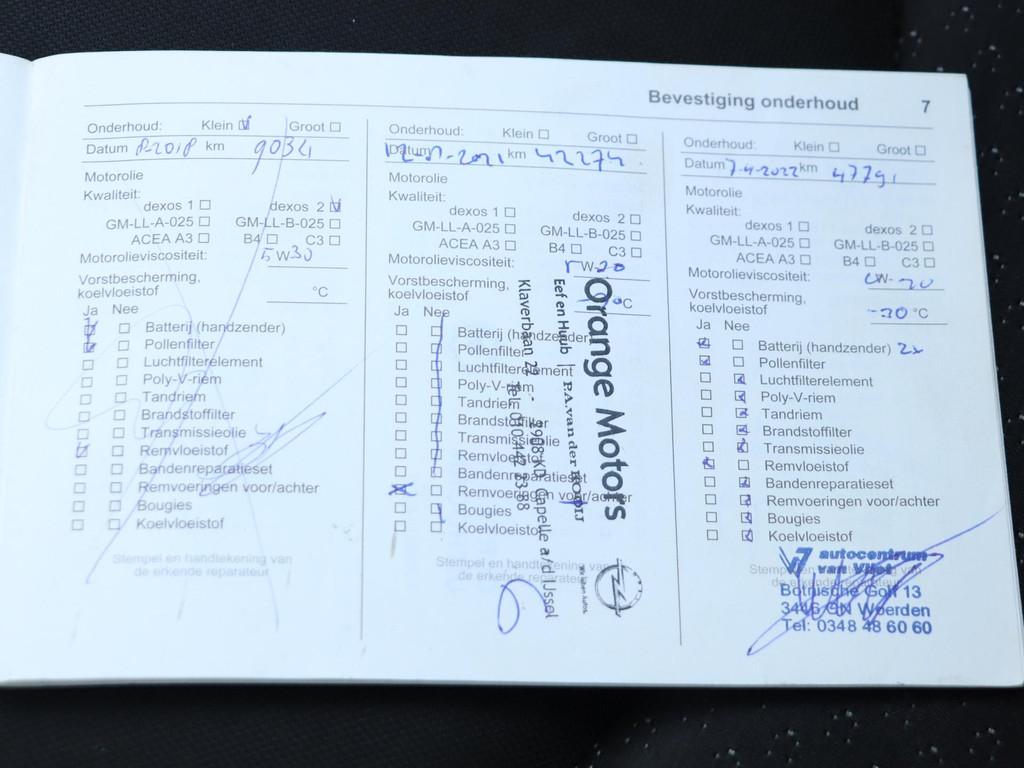 Bevestiging onderhoud 7
Onderhoud: Klein Groot
Datum 8-2018 km 9034
Motorolie
Kwaliteit:
dexos 1 dexos 2
GM-LL-A-025 GM-LL-B-025
ACEA A3 B4 C3
Motorolieviscositeit: 5W30
Vorstbescherming,
koelvloeistof °C
Ja Nee
Batterij (handzender)
Pollenfilter
Luchtfilterelement
Poly-V-riem
Tandriem
Brandstoffilter
Transmissieolie
Remvloeistof
Bandenreparatieset
Remvoeringen voor/achter
Bougies
Koelvloeistof
Stempel en handtekening van
de erkende reparateur
Onderhoud: Klein Groot
Datum km 42274
Motorolie
Kwaliteit:
dexos 1 dexos 2
GM-LL-A-025 GM-LL-B-025
ACEA A3 B4 C3
Motorolieviscositeit: W-20
Vorstbescherming,
koelvloeistof °C
Ja Nee
Batterij (handzender)
Pollenfilter
Luchtfilterelement
Poly-V-riem
Tandriem
Brandstoffilter
Transmissieolie
Remvloeistof
Bandenreparatieset
Remvoeringen voor/achter
Bougies
Koelvloeistof
Stempel en handtekening van
de erkende reparateur
Orange Motors
Eef en Huub | P.A. van der ROOIJ
Klaverbaan 22 - 2908 KD Capelle a/d IJssel
Tel. 010 442 23 88
Onderhoud: Klein Groot
Datum 7-4-2022 km 47791
Motorolie
Kwaliteit:
dexos 1 dexos 2
GM-LL-A-025 GM-LL-B-025
ACEA A3 B4 C3
Motorolieviscositeit: W-20
Vorstbescherming,
koelvloeistof -20 °C
Ja Nee
Batterij (handzender) 2x
Pollenfilter
Luchtfilterelement
Poly-V-riem
Tandriem
Brandstoffilter
Transmissieolie
Remvloeistof
Bandenreparatieset
Remvoeringen voor/achter
Bougies
Koelvloeistof
autocentrum
van Vliet
Botnische Golf 13
3446 CN Woerden
Tel: 0348 48 60 60